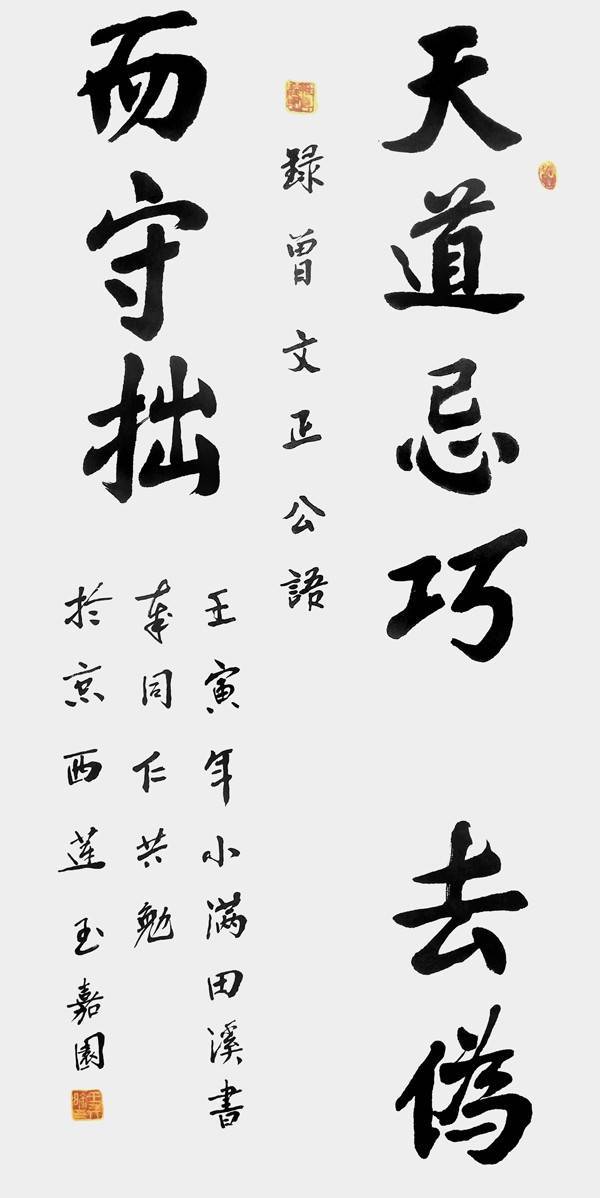 天道忌巧 去偽
而守拙
錄曾文正公語
壬寅年小满田溪書
奉同仁共勉
於京西蓮玉嘉園